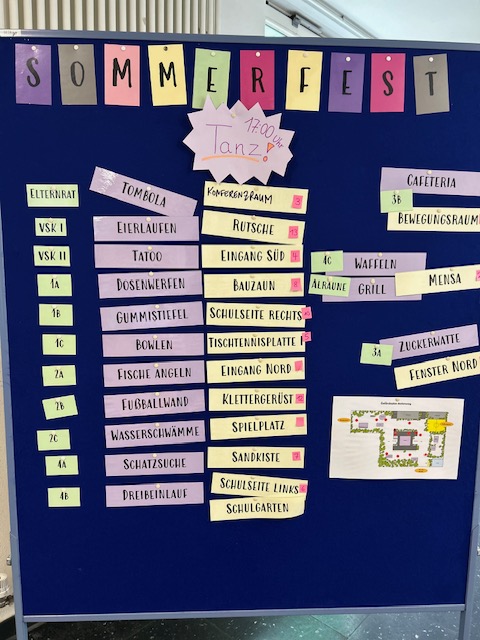 SOMMERFEST
17.00 Uhr
Tanz!
ELTERNRAT TOMBOLA KONFERENZRAUM 3
VSK I EIERLAUFEN RUTSCHE
VSK II TATOO EINGANG SÜD
1A DOSENWERFEN BAUZAUN
1B GUMMISTIEFEL SCHULSEITE RECHTS
1C BOWLEN TISCHTENNISPLATTE
2A FISCHE ANGELN EINGANG NORD
2B FUẞBALLWAND KLETTERGERÜST
2C WASSERSCHWÄMME SPIELPLATZ
4A SCHATZSUCHE SANDKISTE
4B DREIBEINLAUF SCHULSEITE LINKS
SCHULGARTEN
CAFETERIA
3B
BEWEGUNGSRAUM
4C WAFFELN
ALRAUNE GRILL MENSA
3A ZUCKERWATTE
FENSTER NORD